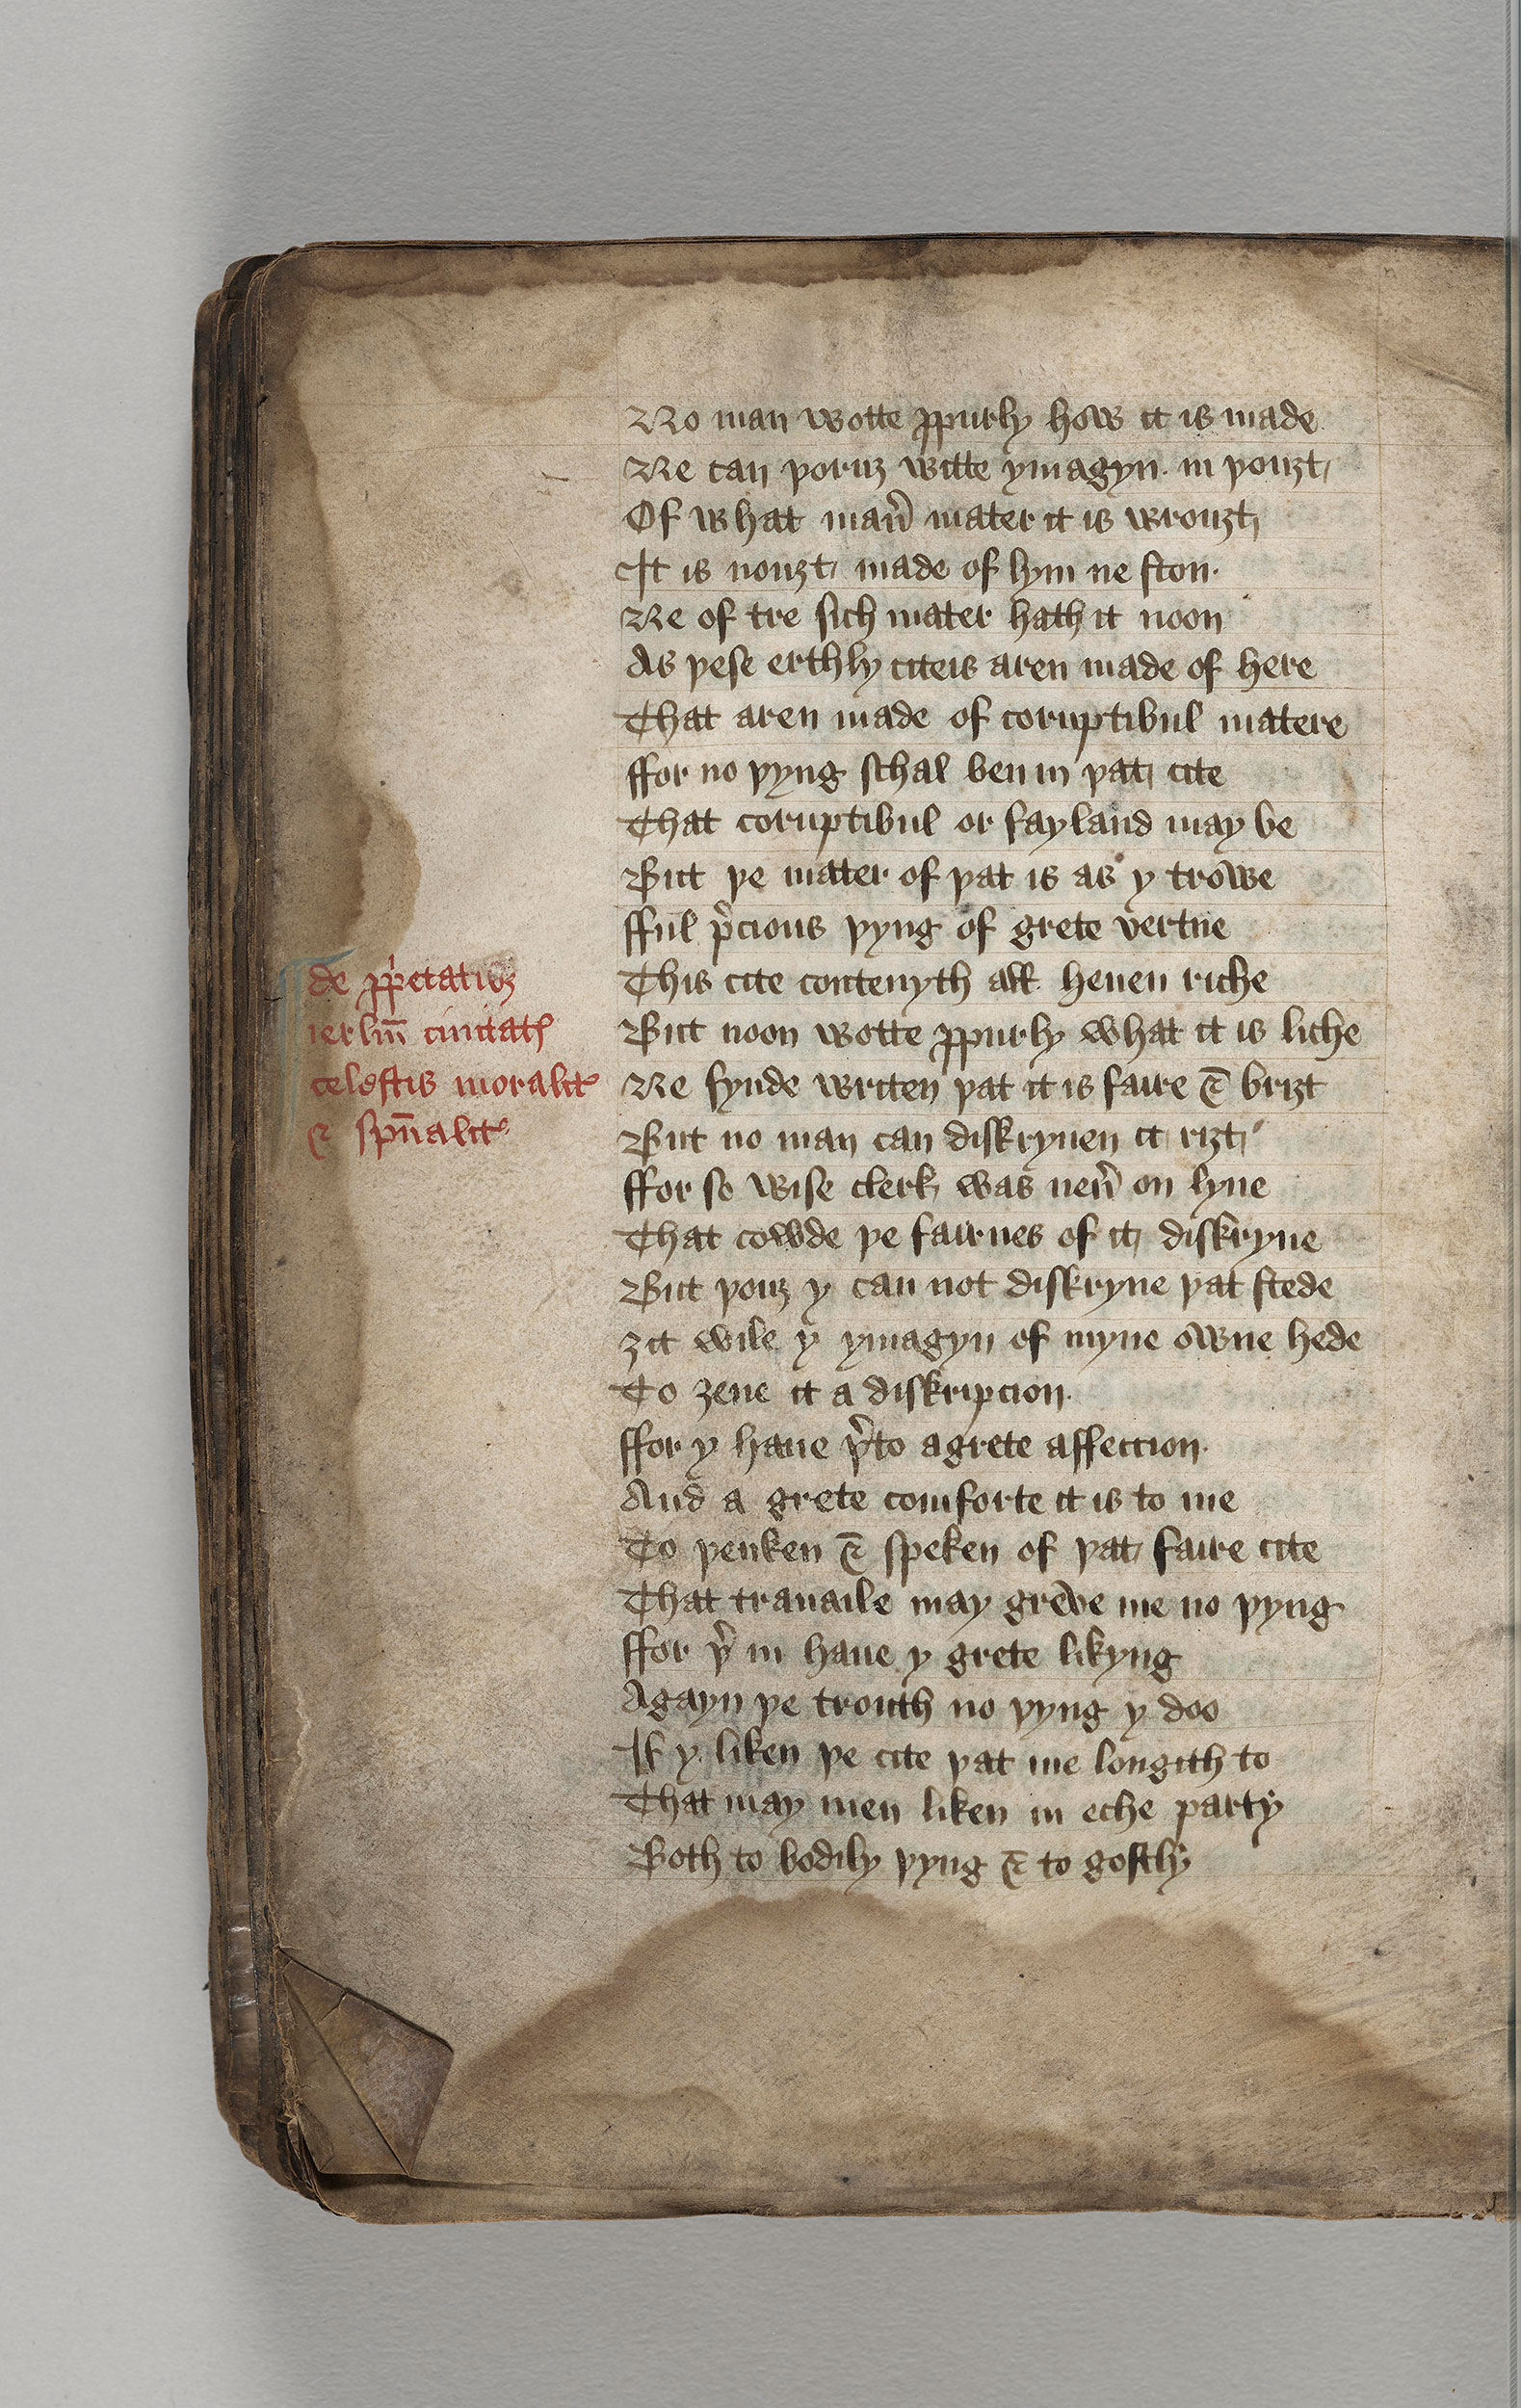 No man wotte ꝓpurly how it is made
Ne can þoruȝ witte ymagyn in þouȝt
Of what man̄ mater it is wrouȝt
It is nouȝt made of lym ne ston
Ne of tre sich mater hath it noon
As þese erthly citeis aren made of here
That aren made of coruptibul matere
ffor no þyng schal ben in þat cite
That coruptibul or fayland may be
But þe mater of þat is as y trowe
fful p̄cious þyng of grete vertue
This cite contenyth all heuen riche
But noon wotte ꝓpurly what it is liche
Ne fynde writen þat it is faire & briȝt
But no man can diskryuen it riȝt
ffor so wise clerk was neu̅ on lyue
That cowde þe fairnes of it diskryue
But þouȝ y can not diskryue þat stede
ȝit wile y ymagyn of myne owne hede
To ȝeue it a diskripcion
ffor y haue þ̄to a grete affeccion
And a grete comforte it is to me
To þenken & speken of þat faire cite
That trauaile may greve me no þyng
ffor þ̄ in haue y grete likyng
Agayn þe trouth no þyng y doo
If y liken þe cite þat me longith to
That may men liken in eche party
Both to bodily þyng & to gostly
de ꝓp̄etatibȝ
ierlm̄ ciuitatꝭ
celestis moralit͛
& sp̄ualit͛